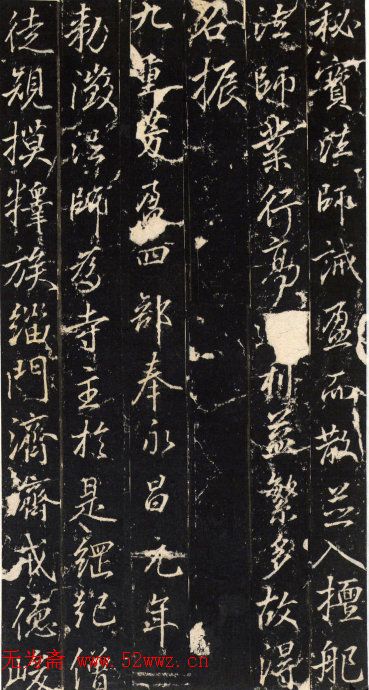 秘寶法師誡盈而散並入檀那
法師業行高利益繁多故得
名振
九重芳盈四部奉永昌元年
勅徵法師為寺主於是綱紀僧
徒規摸釋族緇門濟濟戒德峻
无为斋 www.52wwz.cn